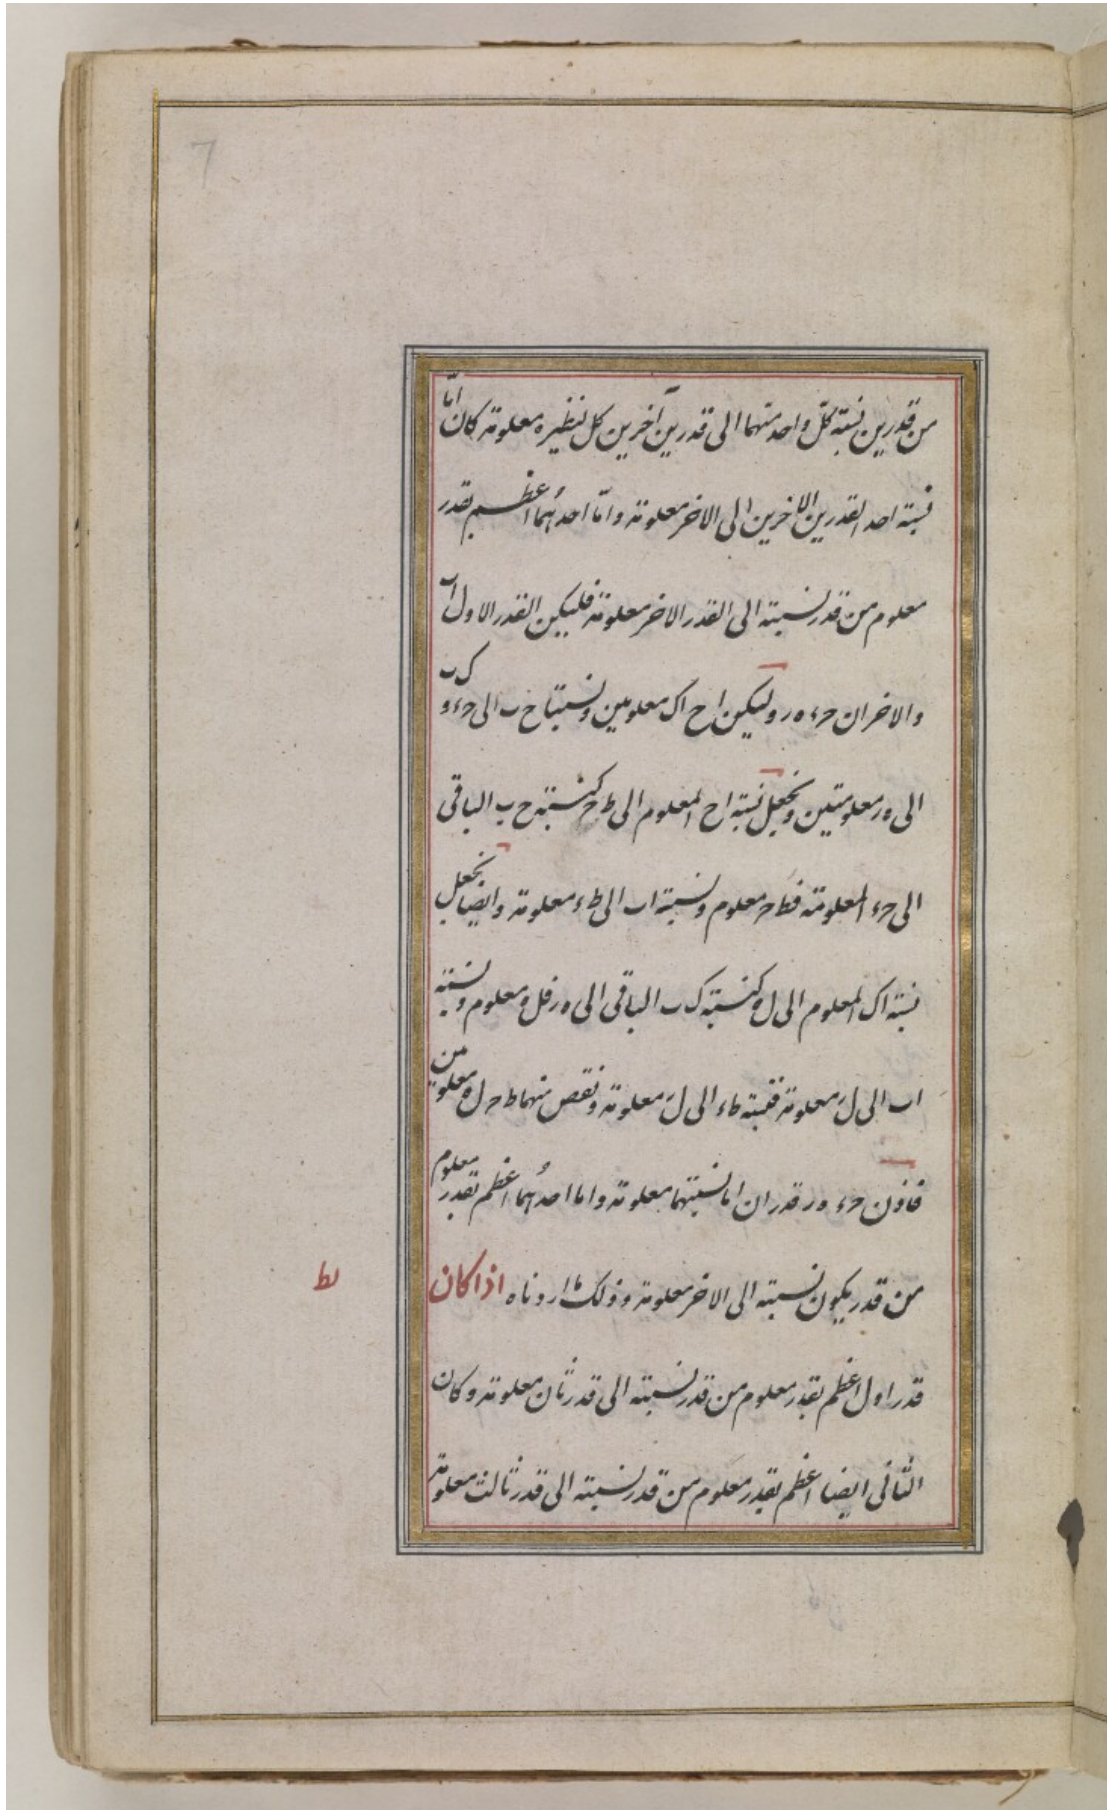 7
من قدرين نسبة كلّ واحد منهما الى قدرين آخرين كل لنظيره معلومة كان امّا
نسبة احد القدرين الاخرين الى الاخر معلومة وامّا احدُهُما اعظم بقدر
معلوم من قدر نسبته الى القدر الاخر معلومة فليكن القدر الاول اب
والاخران حء ه ر وليكن اح اك معلومين ونسبتا ح ب الى حء و ك ب
الى ه ر معلومتين ونجعل نسبة اح المعلوم الى ط ح كنسبة ح ب الباقى
الى حء المعلومة فط ح معلوم ونسبة اب الى طء معلومة وايضا نجعل
نسبة اك المعلوم الى ل ه كنسبة ك ب الباقى الى ه ر فل ه معلوم ونسبة
اب الى ل ر معلومة فنسبة طء الى ل ر معلومة ونقص منهما ط ح ل ه معلومين
فاذن حء ه ر قدران اما نسبتهما معلومة واما احدُهُما اعظم بقدر معلوم
من قدر يكون نسبته الى الاخر معلومة وذلك ما اردناه اذا كان
قدر اول اعظم بقدر معلوم من قدر نسبته الى قدر ثان معلومة وكان
الثانى ايضا اعظم بقدر معلوم من قدر نسبته الى قدر ثالث معلومة
يط